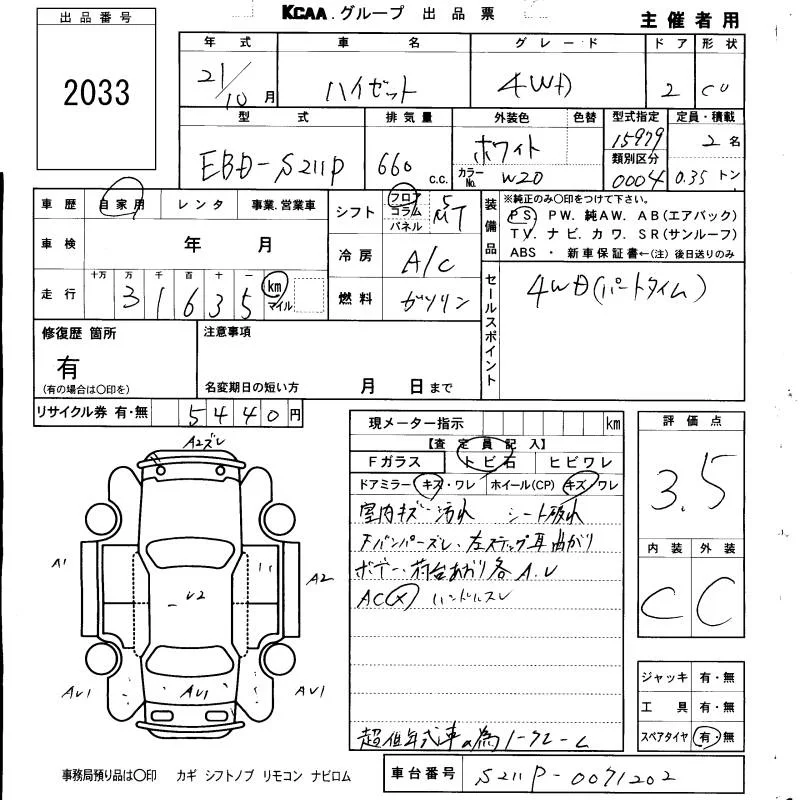 KCAA.グループ 出品票
主催者用
出品番号
2033
年式 車名 グレード ドア 形状
21/10月 ハイゼット 4WD 2 CU
型式 排気量 外装色 色替 型式指定 定員・積載
EBD-S211P 660 c.c. ホワイト 15979 2名
カラーNo. W20 類別区分 0004 0.35トン
車歴 自家用 レンタ 事業.営業車
車検 年 月
走行 十万 万 千 百 十 一
31635 km マイル
シフト フロア コラム パネル 5 MT
冷房 A/C
燃料 ガソリン
装備品
※純正のみ〇印をつけて下さい。
PS PW. 純AW. AB(エアバック)
TV. ナビ. カワ. SR(サンルーフ)
ABS ・ 新車保証書←(注) 後日送りのみ
セールスポイント
4WD(パートタイム)
修復歴 箇所
有
(有の場合は〇印を)
注意事項
名変期日の短い方 月 日まで
リサイクル券 有・無 5440円
現メーター指示 km
【査定員記入】
Fガラス トビ石 ヒビワレ
ドアミラー キズ・ワレ ホイール(CP) キズ/ワレ
室内キズ 汚れ シート破れ
下バンパーズレ、左ステップ耳曲がり
ボデー、荷台あおり各A.U
AC(×) ハンドルスレ
超低年式車の為ノークレーム
評価点
3.5
内装 外装
C C
A2ズレ
A1
A2
U2
AU1
AU1
AU1
ジャッキ 有・無
工具 有・無
スペアタイヤ 有・無
事務局預り品は〇印 カギ シフトノブ リモコン ナビロム
車台番号 S211P-0071202